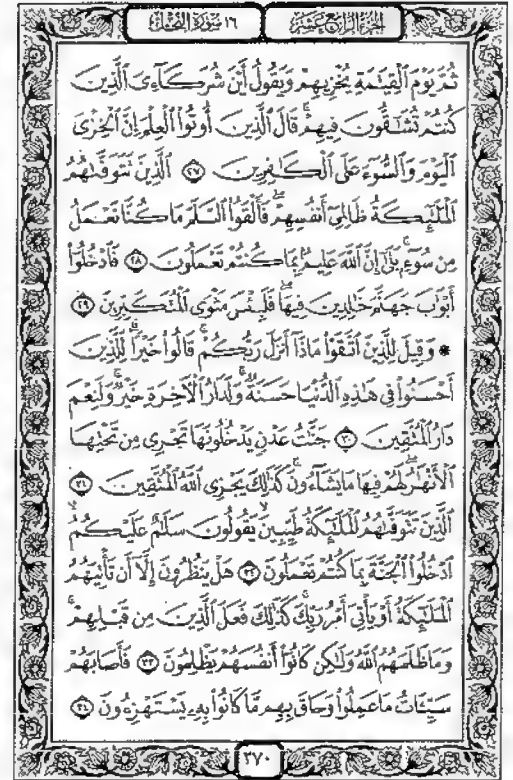 الجزء الرابع عشر ١٦ سورة النحل
ثُمَّ يَوْمَ ٱلْقِيَٰمَةِ يُخْزِيهِمْ وَيَقُولُ أَيْنَ شُرَكَآءِىَ ٱلَّذِينَ
كُنتُمْ تُشَٰٓقُّونَ فِيهِمْ ۚ قَالَ ٱلَّذِينَ أُوتُوا۟ ٱلْعِلْمَ إِنَّ ٱلْخِزْىَ
ٱلْيَوْمَ وَٱلسُّوٓءَ عَلَى ٱلْكَٰفِرِينَ ٢٧ ٱلَّذِينَ تَتَوَفَّىٰهُمُ
ٱلْمَلَٰٓئِكَةُ ظَالِمِىٓ أَنفُسِهِمْ ۖ فَأَلْقَوُا۟ ٱلسَّلَمَ مَا كُنَّا نَعْمَلُ
مِن سُوٓءٍۭ ۚ بَلَىٰٓ إِنَّ ٱللَّهَ عَلِيمٌۢ بِمَا كُنتُمْ تَعْمَلُونَ ٢٨ فَٱدْخُلُوٓا۟
أَبْوَٰبَ جَهَنَّمَ خَٰلِدِينَ فِيهَا ۖ فَلَبِئْسَ مَثْوَى ٱلْمُتَكَبِّرِينَ ٢٩
* وَقِيلَ لِلَّذِينَ ٱتَّقَوْا۟ مَاذَآ أَنزَلَ رَبُّكُمْ ۚ قَالُوا۟ خَيْرًا ۗ لِّلَّذِينَ
أَحْسَنُوا۟ فِى هَٰذِهِ ٱلدُّنْيَا حَسَنَةٌ ۚ وَلَدَارُ ٱلْءَاخِرَةِ خَيْرٌ ۚ وَلَنِعْمَ
دَارُ ٱلْمُتَّقِينَ ٣٠ جَنَّٰتُ عَدْنٍ يَدْخُلُونَهَا تَجْرِى مِن تَحْتِهَا
ٱلْأَنْهَٰرُ ۖ لَهُمْ فِيهَا مَا يَشَآءُونَ ۚ كَذَٰلِكَ يَجْزِى ٱللَّهُ ٱلْمُتَّقِينَ ٣١
ٱلَّذِينَ تَتَوَفَّىٰهُمُ ٱلْمَلَٰٓئِكَةُ طَيِّبِينَ ۙ يَقُولُونَ سَلَٰمٌ عَلَيْكُمُ
ٱدْخُلُوا۟ ٱلْجَنَّةَ بِمَا كُنتُمْ تَعْمَلُونَ ٣٢ هَلْ يَنظُرُونَ إِلَّآ أَن تَأْتِيَهُمُ
ٱلْمَلَٰٓئِكَةُ أَوْ يَأْتِىَ أَمْرُ رَبِّكَ ۚ كَذَٰلِكَ فَعَلَ ٱلَّذِينَ مِن قَبْلِهِمْ ۚ
وَمَا ظَلَمَهُمُ ٱللَّهُ وَلَٰكِن كَانُوٓا۟ أَنفُسَهُمْ يَظْلِمُونَ ٣٣ فَأَصَابَهُمْ
سَيِّـَٔاتُ مَا عَمِلُوا۟ وَحَاقَ بِهِم مَّا كَانُوا۟ بِهِۦ يَسْتَهْزِءُونَ ٣٤
٣٧٠